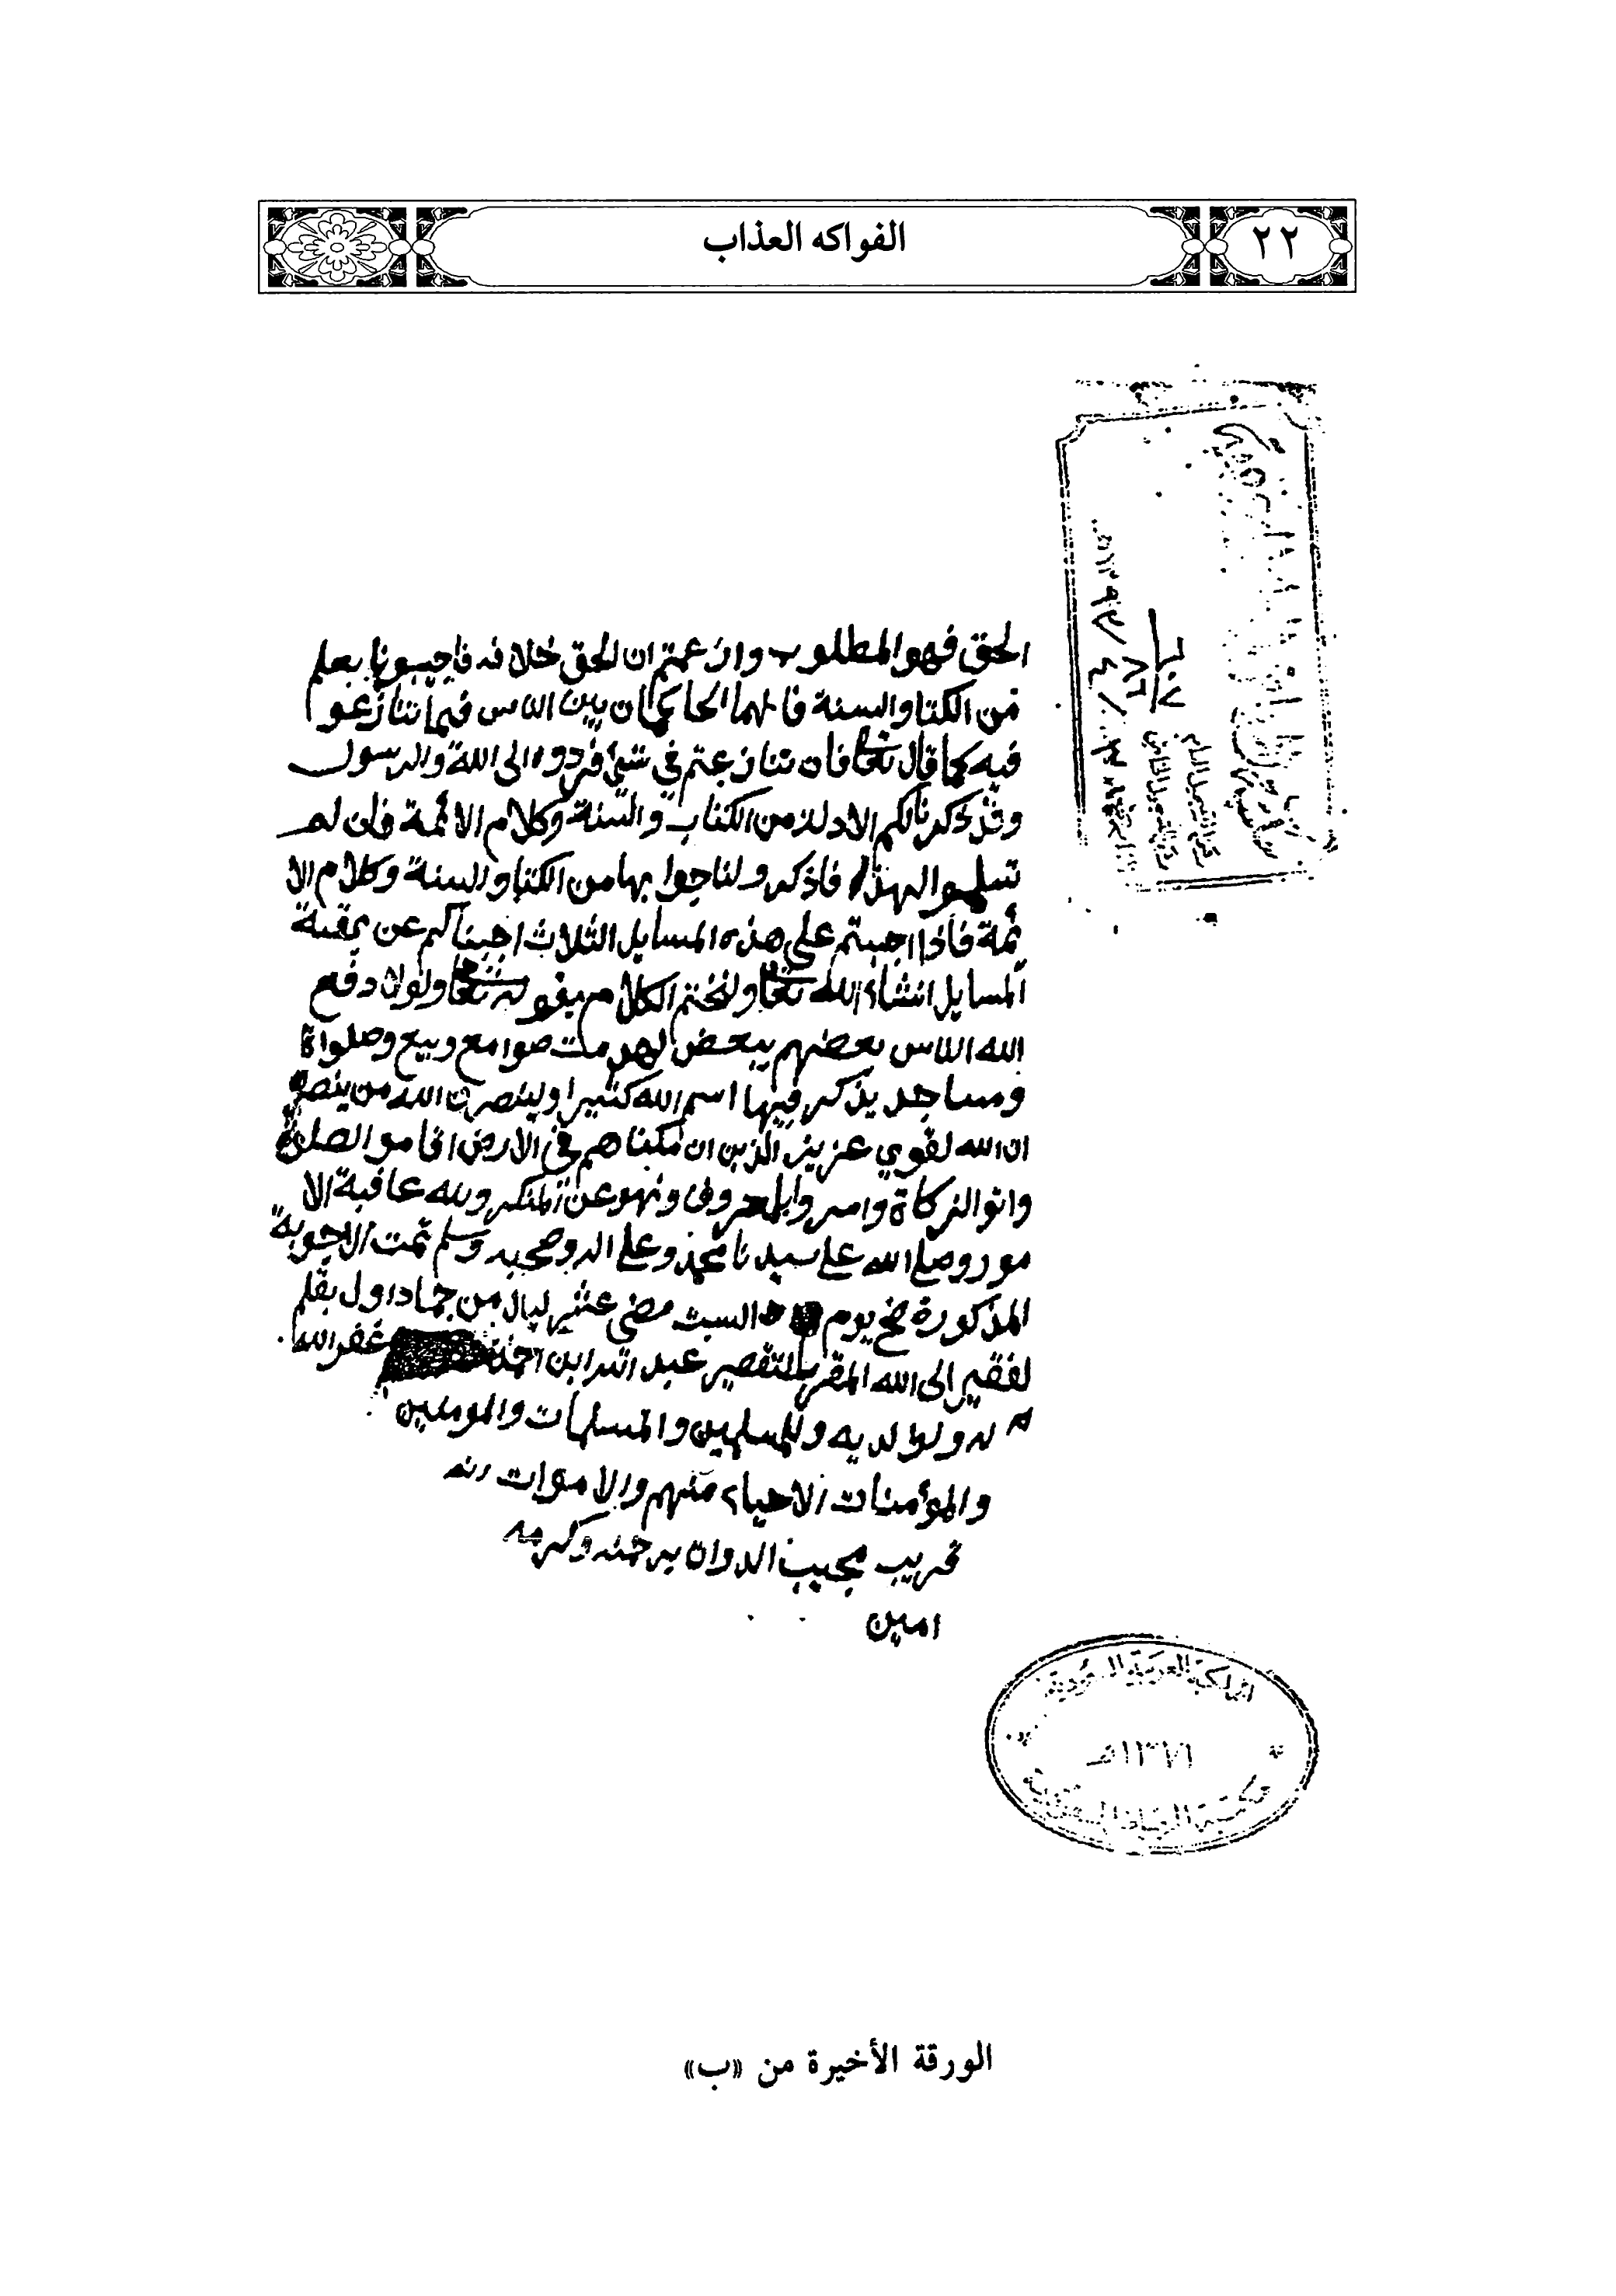 ٢٢
الفواكه العذاب
الحق فهو المطلوب وان زعمتم ان الحق خلافه فاجيبونا بعلم
من الكتا والسنة فانهما الحاكمان بين الناس فيما تنازعوا
فيه كما قال تعالى فان تنازعتم في شيئ فردوه الى الله والرسول
وقد ذكرنا لكم الادلة من الكتاب والسنة وكلام الأئمة فان لم
تسلموا لهذا فاذكرو لنا جوابها من الكتا والسنة وكلام الا
ئمة فاذا اجبتم على هذه المسايل الثلاث اجبناكم عن بقية
المسايل انشاء الله تعالى ولنختم الكلام بقوله تعالى ولولا دفع
الله الناس بعضهم ببعض لهدمت صوامع وبيع وصلواة
ومساجد يذكر فيها اسم الله كثيرا ولينصرن الله من ينصره
ان الله لقوي عزيز الذين ان مكناهم في الارض اقامو الصلوة
واتو الزكاة وامرو بالمعروف ونهو عن المنكر ولله عاقبة الا
مور وصلى الله على سيدنا محمد وعلى اله وصحبه وسلم تمت الاجوبة
المذكورة ضح يوم السبت مضى عشر ليال من جماد اول بقلم
لفقير إلى الله المقر بالتقصير عبد الله ابن احمد غفر الله
له ولوالديه وللمسلمين والمسلمات والمومنين
والمؤمنات الاحياء منهم والاموات انه
قريب مجيب الدواة برحمته وكرمه
امين
المملكة العربية السعودية
١٣٧٦هـ
الورقة الأخيرة من «ب»